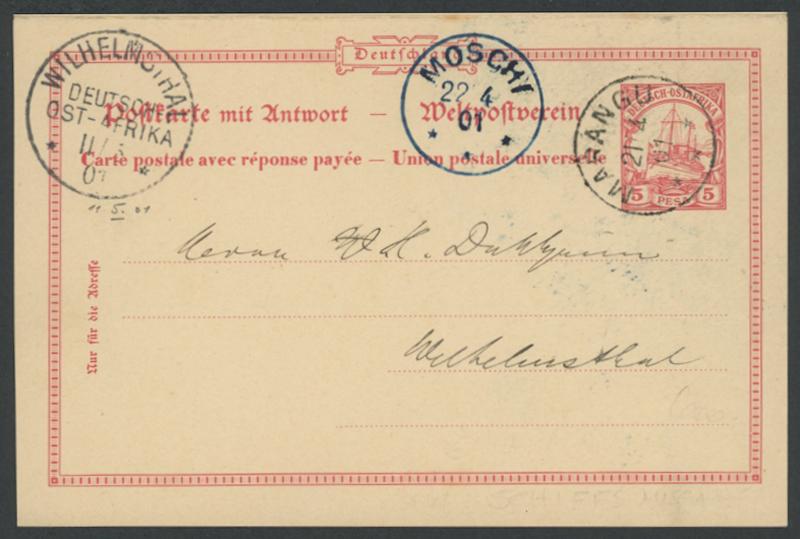 Deutsch
WILHELMSTHAL
DEUTSCH-
OST-AFRIKA
11/5
01
MOSCHI
22 4
01
MARANGU
21 4
01
DEUTSCH-OSTAFRIKA
5 PESA 5
Postkarte mit Antwort — Weltpostverein
Carte postale avec réponse payée — Union postale universelle
11 5. 01
Herrn H.
Wilhelmsthal
Nur für die Adresse